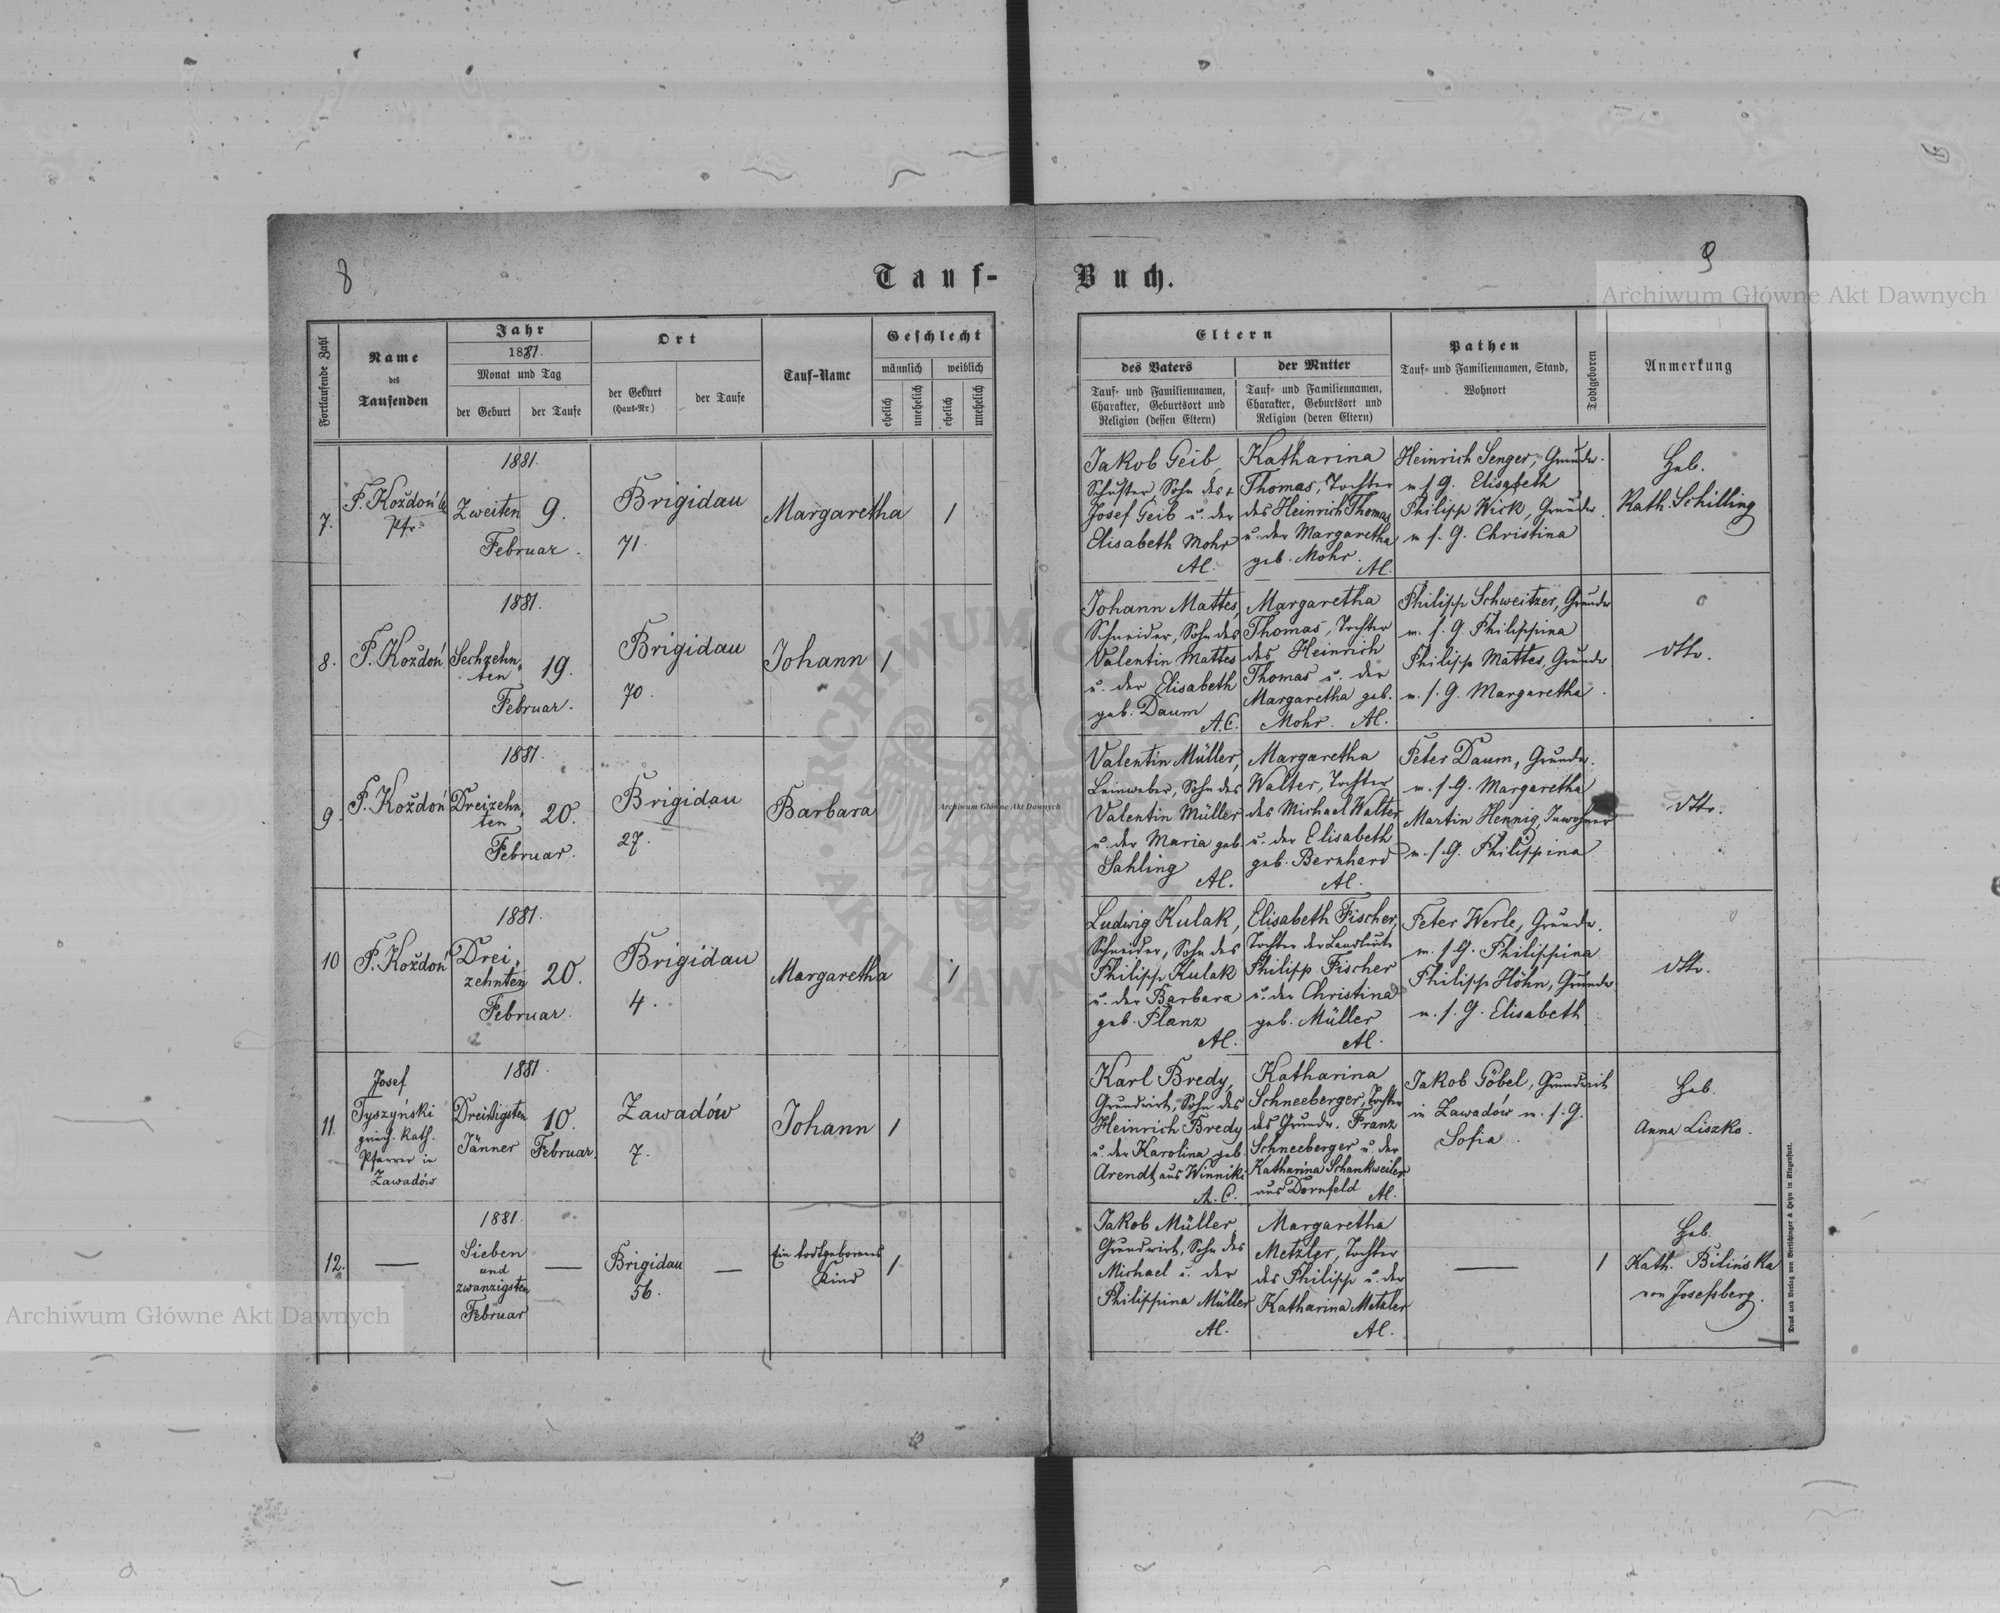 8
9
Tauf-
Buch.
Fortlaufende Zahl
Name
des
Taufenden
Jahr
1881.
Monat und Tag
der Geburt
der Taufe
Ort
der Geburt
(Haus-Nr.)
der Taufe
Tauf-Name
Geschlecht
männlich
weiblich
ehelich
unehelich
ehelich
unehelich
Eltern
des Vaters
Tauf- und Familiennamen,
Charakter, Geburtsort und
Religion (dessen Eltern)
der Mutter
Tauf- und Familiennamen,
Charakter, Geburtsort und
Religion (deren Eltern)
Pathen
Tauf- und Familiennamen, Stand,
Wohnort
Todtgeboren
Anmerkung
7.
F. Koždoń
Pfr.
1881.
Zweiten
Februar.
9.
Brigidau
71.
Margaretha
1
Jakob Geib,
Schuster, Sohn des
Josef Geib u. der
Elisabeth Mohr
Al.
Katharina
Thomas, Tochter
des Heinrich Thomas
u. der Margaretha
geb. Mohr.
Al.
Heinrich Senger, Grundw.
u. s. G. Elisabeth
Philipp Wick, Grundw.
u. s. G. Christina
Heb.
Kath. Schilling
8.
F. Koždoń
1881.
Sechzehn-
ten
Februar.
19.
Brigidau
70.
Johann
1
Johann Mattes,
Schneider, Sohn des
Valentin Mattes
u. der Elisabeth
geb. Daum
A.C.
Margaretha
Thomas, Tochter
des Heinrich
Thomas u. der
Margaretha geb.
Mohr. Al.
Philipp Schweitzer, Grundw
u. s. G. Philippina
Philipp Mattes, Grundw
u. s. G. Margaretha.
dtto.
9.
F. Koždoń
1881.
Dreizehn-
ten
Februar.
20.
Brigidau
27.
Barbara
1
Valentin Müller,
Leinweber, Sohn des
Valentin Müller
u. der Maria geb.
Sahling
Al.
Margaretha
Walter, Tochter
des Michael Walter
u. der Elisabeth
geb. Bernhard
Al.
Peter Daum, Grundw.
u. s. G. Margaretha
Martin Hennig, Inwohner
u. s. G. Philippina
dtto.
10
F. Koždoń
1881.
Drei-
zehnten
Februar.
20.
Brigidau
4.
Margaretha
1
Ludwig Kulak,
Schneider, Sohn des
Philipp Kulak
u. der Barbara
geb. Planz
Al.
Elisabeth Fischer,
Tochter der Landleute
Philipp Fischer
u. der Christina
geb. Müller
Al.
Peter Werle, Grundw.
u. s. G. Philippina
Philipp Höhn, Grundw.
u. s. G. Elisabeth.
dtto.
11.
Josef
Tyszyński
griech. Kath.
Pfarrer in
Zawadów
1881.
Dreißigsten
Jänner
10.
Februar.
Zawadów
7.
Johann
1
Karl Bredy,
Grundwirt, Sohn des
Heinrich Bredy
u. der Karolina geb.
Arendt aus Winniki
A. C.
Katharina
Schneeberger, Tochter
des Grundw. Franz
Schneeberger u. der
Katharina Schankweiler
aus Dornfeld Al.
Jakob Göbel, Grundwirt
in Zawadów u. s. G.
Sofia.
Heb.
Anna Liszko.
12.
1881.
Sieben
und
zwanzigsten
Februar
Brigidau
56.
Ein todtgeborenes
Kind
1
Jakob Müller,
Grundwirt, Sohn des
Michael u. der
Philippina Müller
Al.
Margaretha
Metzler, Tochter
des Philipp u. der
Katharina Metzler
Al.
1
Heb.
Kath. Bilińska
von Josefsberg.
Druck und Verlag von Bertschinger & Heyn in Klagenfurt.
Archiwum Główne Akt Dawnych
Archiwum Główne Akt Dawnych
Archiwum Główne Akt Dawnych